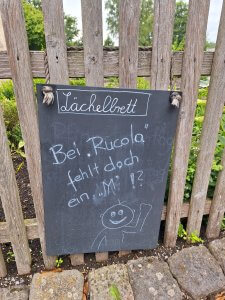 Lächelbrett
Bei „Rucola“
fehlt doch
ein „M“ !?